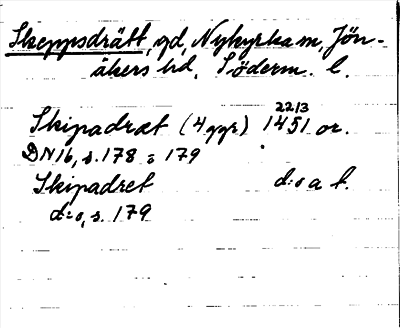 Skeppsdrätt, gd, Nykyrka sn, Jön-
åkers hd, Söderm. l.
22/3
Skipadræt (4 ggr) 1451 or.
DN 16, s. 178 o 179
Skipadret d:o a f.
d:o, s. 179